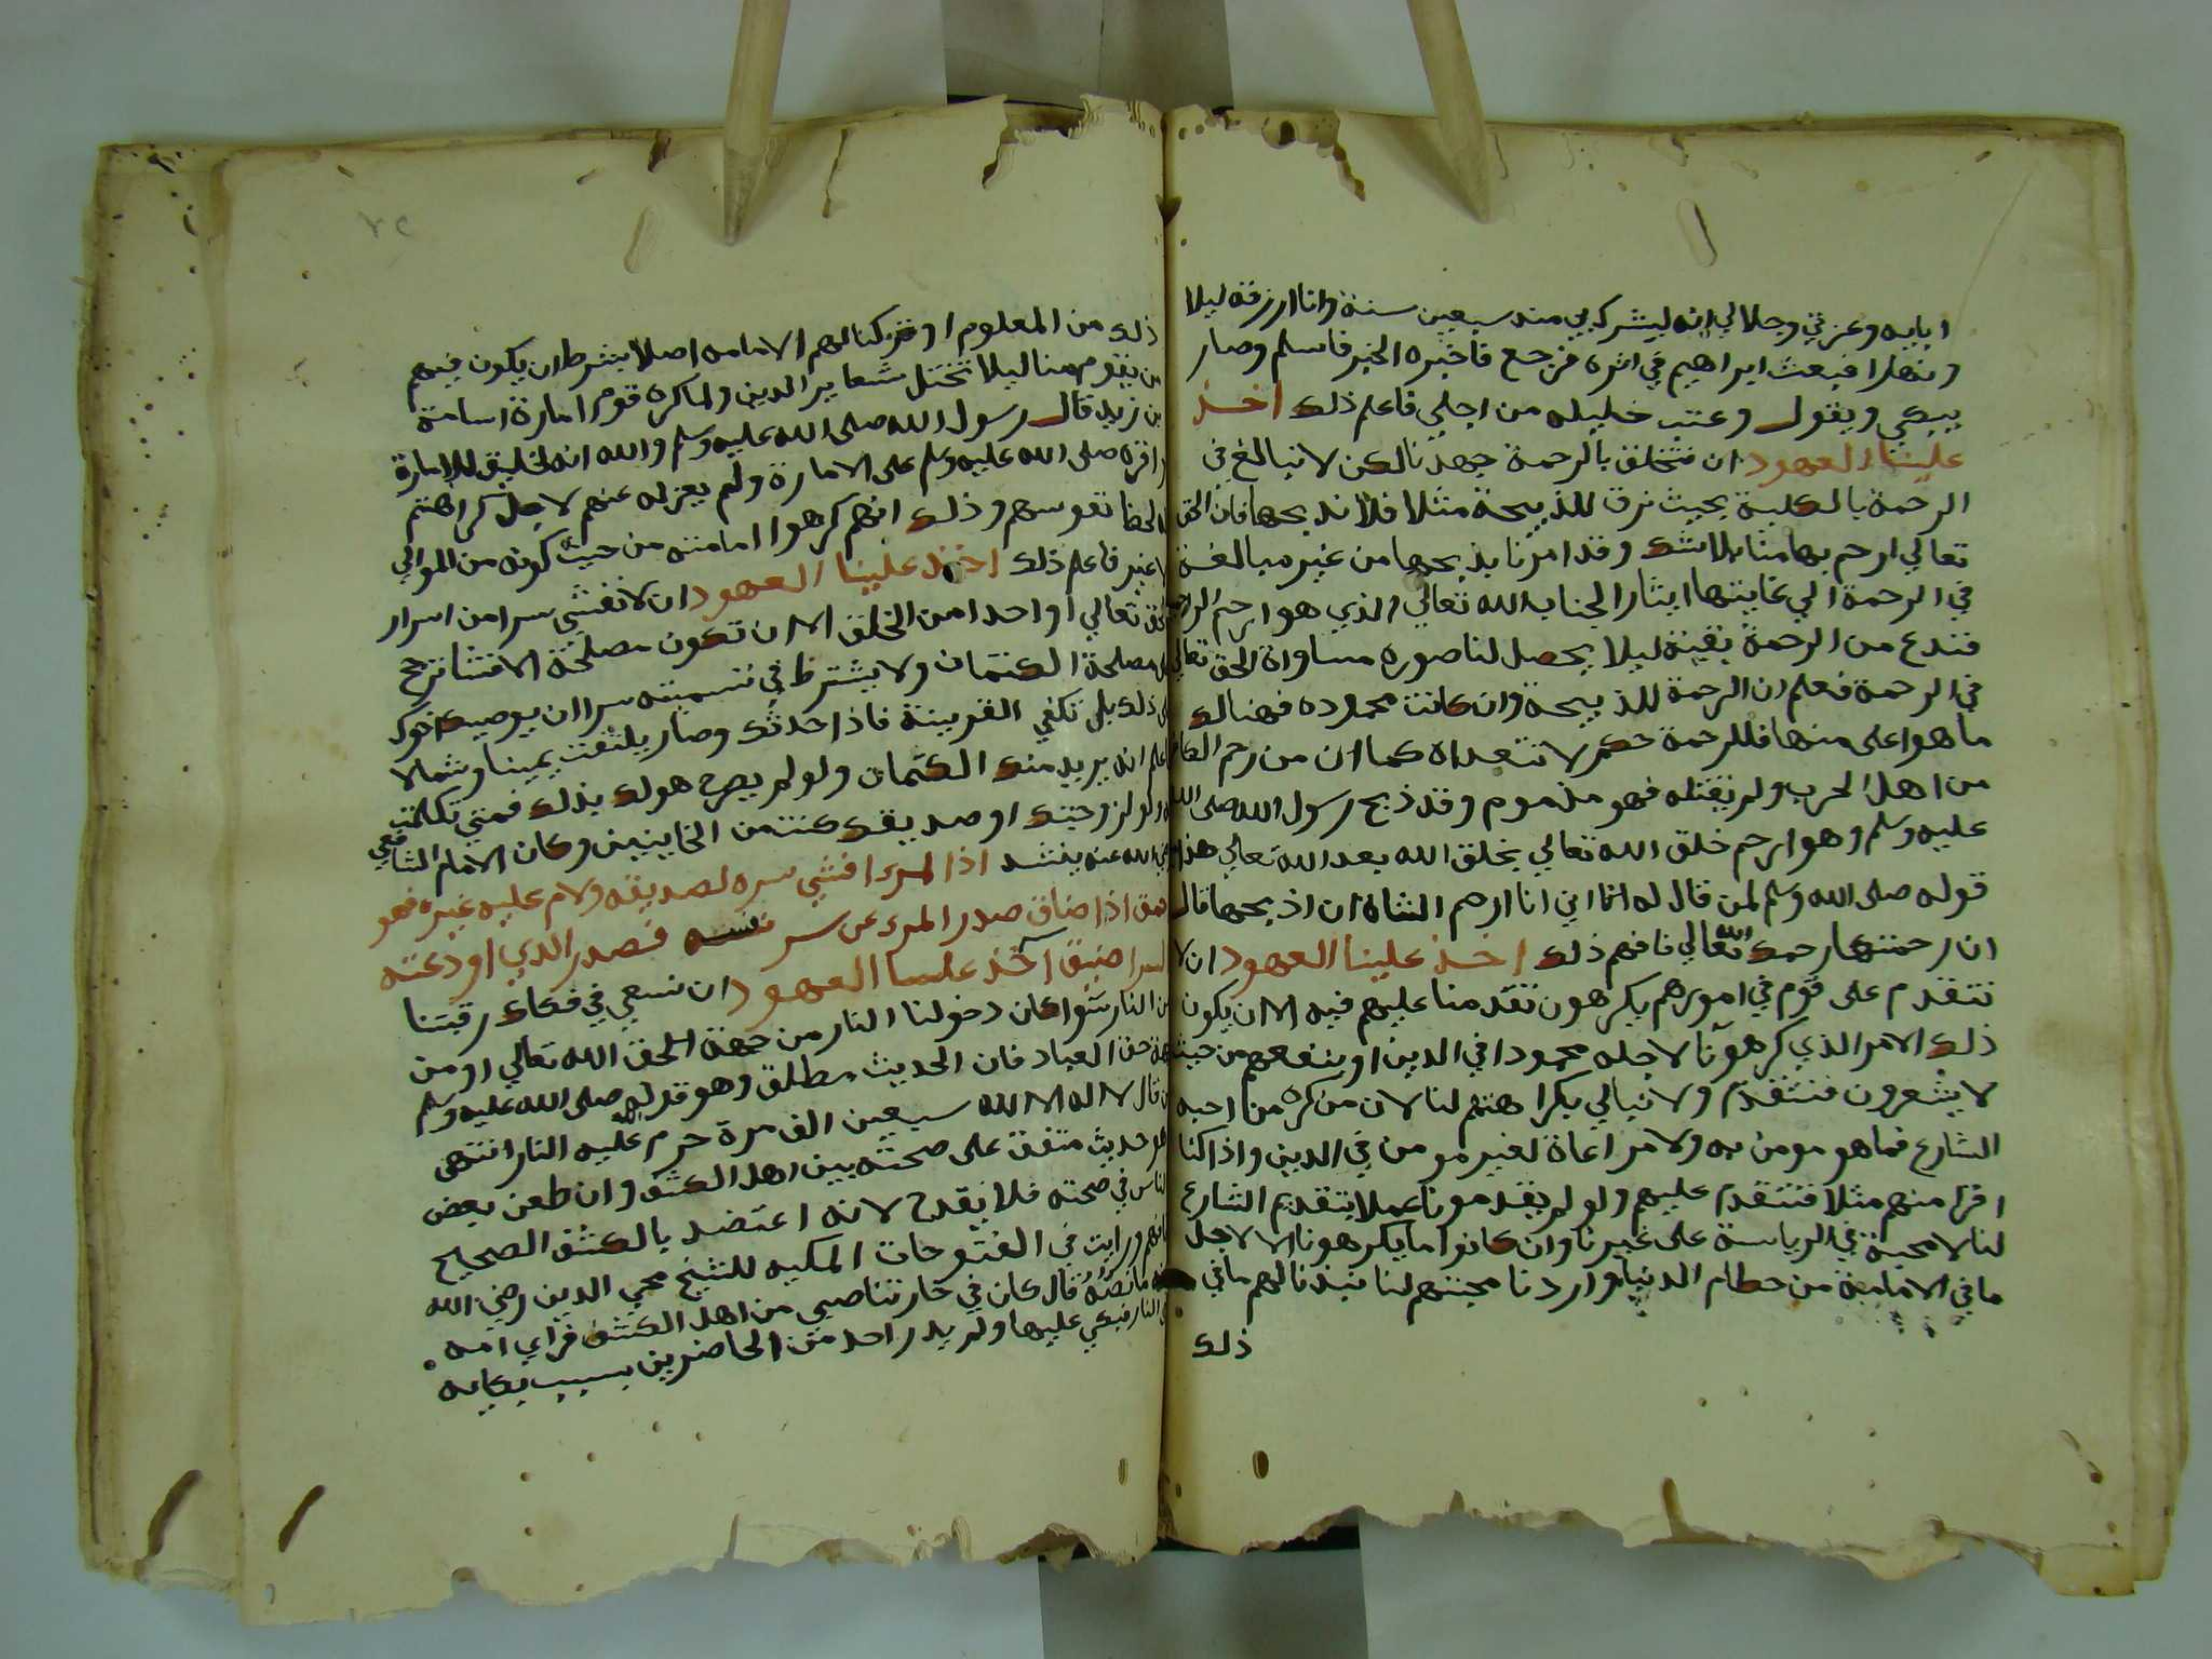 ابايه وعزتي وجلالي انه ليشرك بي منذ سبعين سنة وانا ارزقه ليلا
ونهارا فبعث ابراهيم في اثره فرجع فاخبره الخبر فاسلم وصار
يبكي ويقول وعتب خليله من اجلي فاعلم ذلك اخذ
علينا العهود ان نتخلق بالرحمة جهدنا لكن لا نبالغ في
الرحمة بالكلية بحيث نرق للذبيحة مثلا فلا نذبحها فان الحق
تعالي ارحم بها منا بلا شك وقد امرنا بذبحها من غير مبالغة
في الرحمة الي غايتها ايثارا لجناب الله تعالي الذي هو ارحم الراحمين
فندع من الرحمة بقية ليلا يحصل لنا صورة مساواة الحق تعالي
في الرحمة فعلم ان الرحمة للذبيحة وان كانت محمودة فهنالك
ما هو اعلى منها فللرحمة حكم لا تتعداه كما ان من رحم الكافر
من اهل الحرب ولم يقتله فهو مذموم وقد ذبح رسول الله صلى الله
عليه وسلم وهو ارحم خلق الله تعالي بخلق الله بعد الله تعالي هذا مع
قوله صلى الله وسلم لمن قال له اني انا ارحم الشاة ان اذبحها قال
ان رحمتها رحمك الله تعالي فافهم ذلك اخذ علينا العهود ان لا
نتقدم على قوم في امورهم يكرهون تقدمنا عليهم فيه الا ان يكون
ذلك الامر الذي كرهونا لاجله محمودا في الدين او ينفعهم من حيث
لا يشعرون فنتقدم ولا نبالي بكراهتهم لنا لان من كره من احبه
الشارع فما هو مومن به ولا مراعاة لغير مومن في الدين واذا كنا
اقرا منهم مثلا فنتقدم عليهم ولو لم يقدمونا عملا بتقديم الشارع
لنا لا محبة في الرياسة على غيرنا وان كانوا ما يكرهونا الا لاجل
ما في الامامة من حطام الدنيا واردنا محبتهم لنا نبذنا لهم ما في
ذلك
ذلك من المعلوم او تركنا لهم الامامه اصلا بشرط ان يكون فيهم
من يقوم منا ليلا تختل شعاير الدين ولما كره قوم امارة اسامة
بن زيد قال رسول الله صلى الله عليه وسلم والله انه لخليق للامارة
واقره صلى الله عليه وسلم على الامارة ولم يعزله عنهم لاجل كراهتهم
لحظ نفوسهم وذلك انهم كرهوا امامته من حيث كونه من الموالي
لا غير فاعلم ذلك اخذ علينا العهود ان لا نفشي سرا من اسرار
الحق تعالي او احدا من الخلق الا ان تكون مصلحة الافشا ترجح
على مصلحة الكتمان ولا يشترط في تسميته سرا ان يوصيك اخوك
على ذلك بل تكفي القرينة فاذا حدثك وصار يلتفت يمينا وشمالا
فاعلم انه يريد منك الكتمان ولو لم يصرح هو لك بذلك فمتي تكلمت
به ولو لزوجتك او صديقك كنت من الخاينين وكان الامام الشافعي
رضي الله عنه ينشد اذا المرء افشي سره لصديقه ولام عليه غيره فهو
احمق اذا ضاق صدر المرء عن سر نفسه فصدر الذي اودعته
السر اضيق اخذ علينا العهود ان نسعي في فكاك رقبتنا
من النار سوا كان دخولنا النار من جهة الحق الله تعالي او من
جهة حق العباد فان الحديث مطلق وهو قوله صلى الله عليه وسلم
من قال لا اله الا الله سبعين الف مرة حرم الله عليه النار انتهى
هو حديث متفق على صحته بين اهل الكشف وان طعن بعض
الناس في صحته فلا يقدح لانه اعتضد بالكشف الصحيح
فافهم ورايت في الفتوحات المكيه للشيخ محي الدين رضي الله
عنه ما نصه قال كان في حارتنا صبي من اهل الكشف فراي امه
في النار فبكي عليها ولم يدر احد من الحاضرين بسبب بكايه